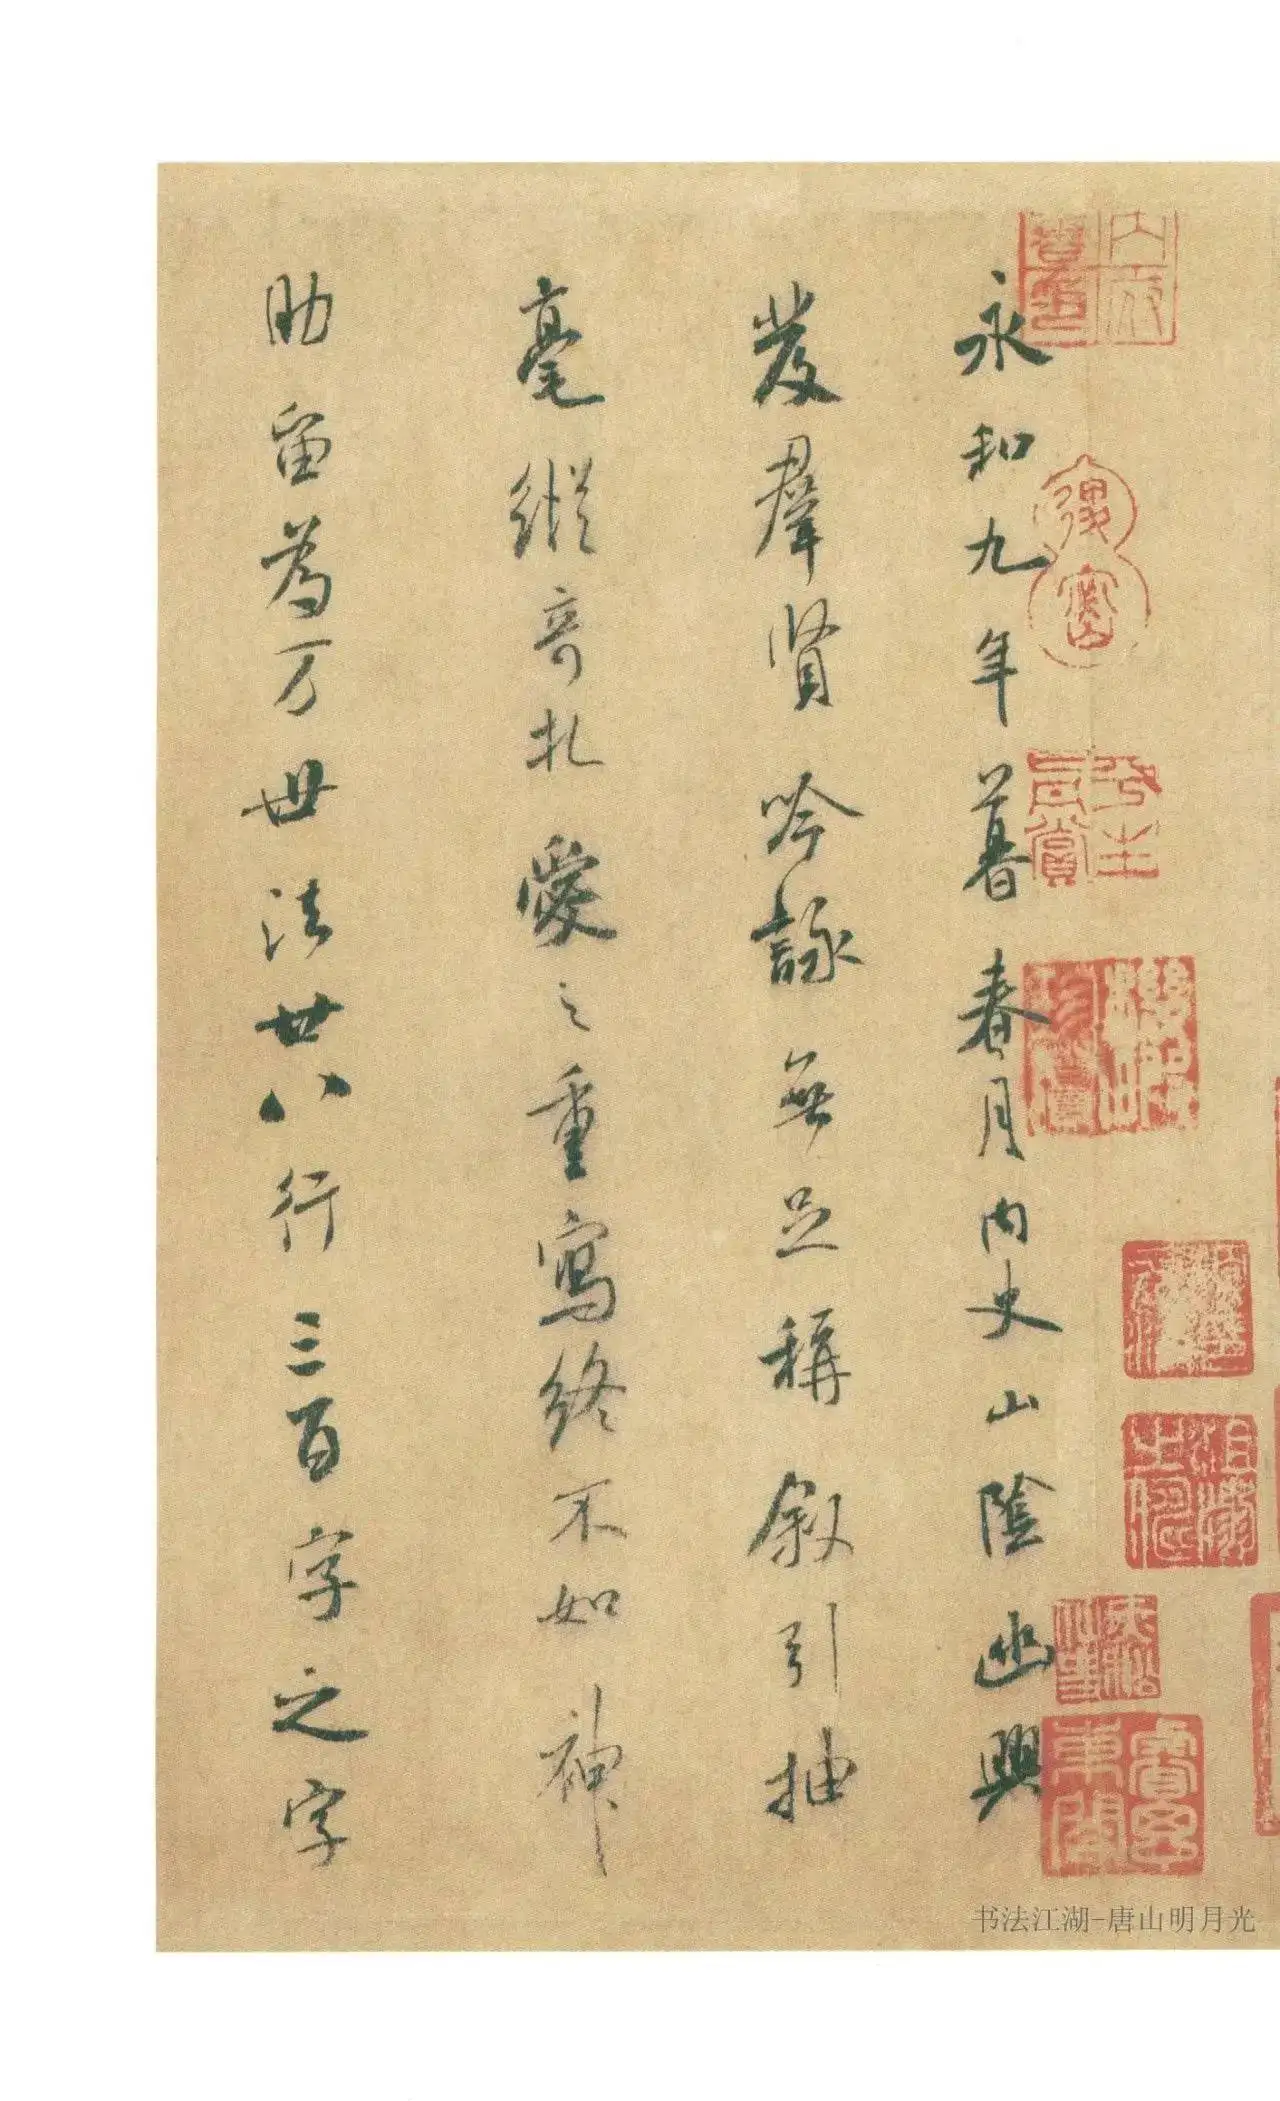 永和九年暮春月内史山陰幽興
發羣賢吟詠無足稱叙引抽
毫縱奇札愛之重寫終不如神
助留為万世法廿八行三百字之字
书法江湖-唐山明月光